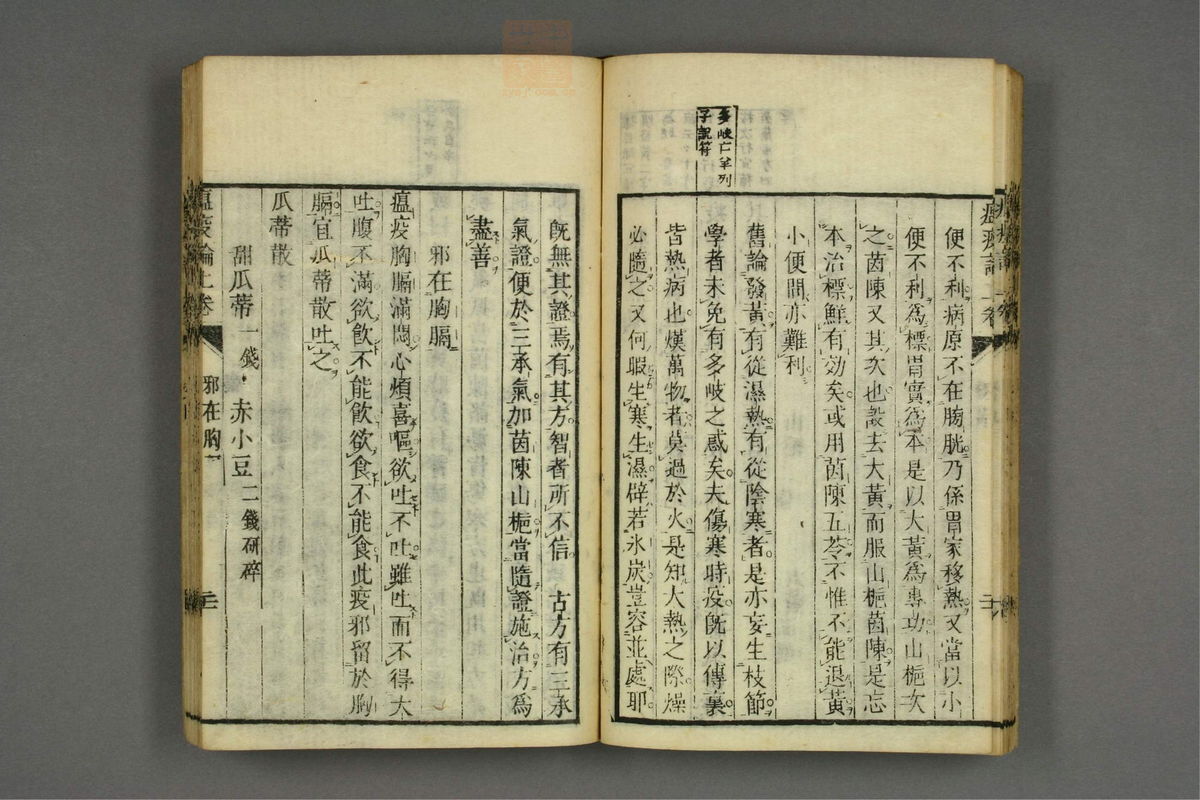 多岐亡羊列
子說符
瘟疫論上卷
便不利病原不在膀胱乃係胃家移熱又當以小
便不利為標胃實為本是以大黃為專功山梔次
之茵陳又其次也設去大黃而服山梔茵陳是忘
本治標鮮有効矣或用茵陳五苓不惟不能退黃
小便間亦難利
舊論發黃有從濕熱有從陰寒者是亦妄生枝節
學者未免有多岐之惑矣夫傷寒時疫旣以傳裏
皆熱病也熯萬物者莫過於火是知大熱之際燥
必隨之又何暇生寒生濕辟若氷炭豈容並處耶
旣無其證焉有其方智者所不信 古方有三承
氣證便於三承氣加茵陳山梔當隨證施治方為
盡善
邪在胸膈
瘟疫胸膈滿悶心煩喜嘔欲吐不吐雖吐而不得大
吐腹不滿欲飮不能飮欲食不能食此疫邪留於胸
膈宜瓜蒂散吐之
瓜蒂散
甜瓜蒂一錢 赤小豆二錢研碎
瘟疫論上卷 邪在胸